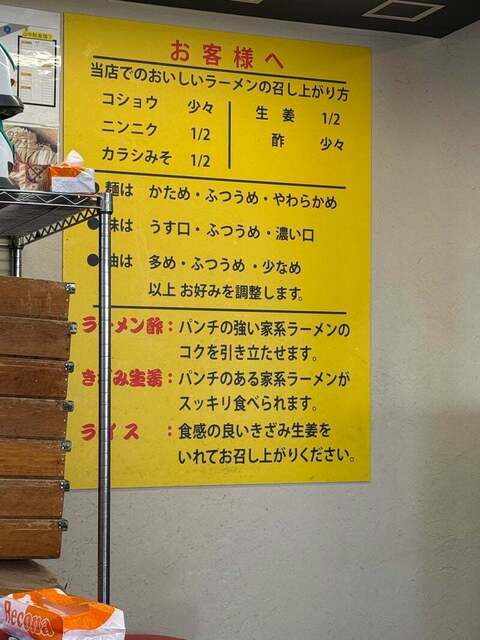 お客様へ
当店でのおいしいラーメンの召し上がり方
コショウ 少々
ニンニク 1/2
カラシみそ 1/2
生姜 1/2
酢 少々
麺は かため・ふつうめ・やわらかめ
●味は うす口・ふつうめ・濃い口
●油は 多め・ふつうめ・少なめ
以上 お好みを調整します。
ラーメン酢：パンチの強い家系ラーメンの
コクを引き立たせます。
きざみ生姜：パンチのある家系ラーメンが
スッキリ食べられます。
ライス：食感の良いきざみ生姜を
いれてお召し上がりください。